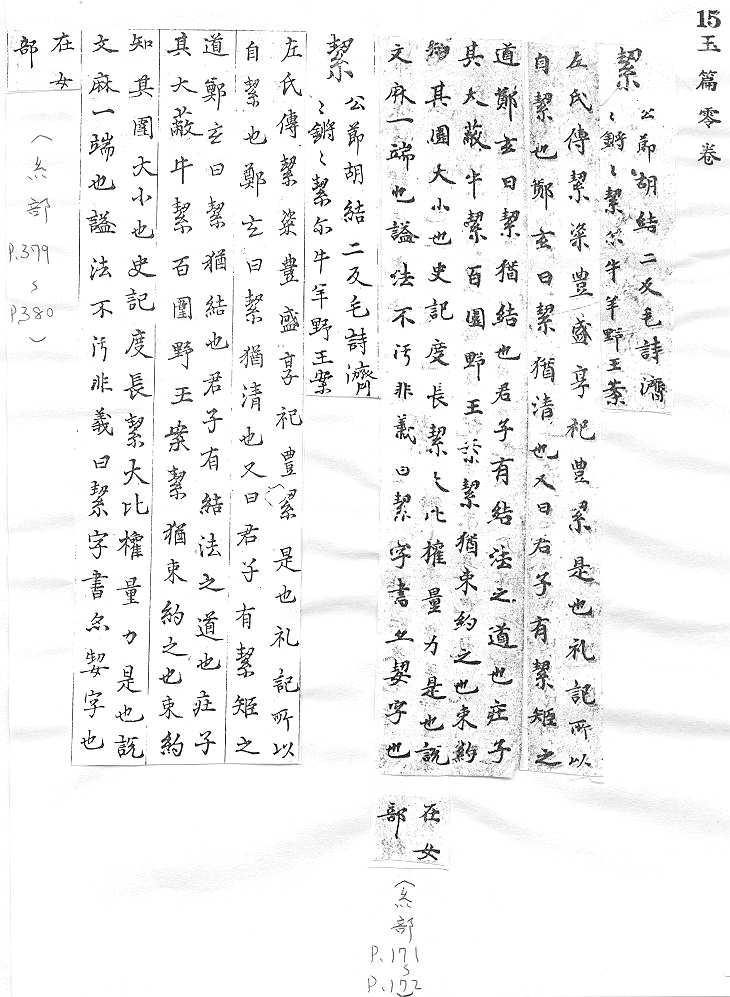 15
玉篇零卷
絜
公莭胡結二反毛詩濟
〻鏘〻絜尒牛羊野王案
左氏傳絜粢豊盛享祀豊絜是也礼記所以
自絜也鄭玄曰絜猶清也又曰君子有絜矩之
道鄭玄曰絜猶結也君子有結法之道也莊子
其大蔽牛絜百圍野王案絜猶束約之也束約
知其圍大小也史記度長絜大比權量力是也説
文麻一端也謚法不汚非義曰絜字書亦㛃字也
在女
部
(糸部
P.171
~
P.172
)
絜
公莭胡結二反毛詩濟
〻鏘〻絜尒牛羊野王案
左氏傳絜粢豊盛享祀豊絜是也礼記所以
自絜也鄭玄曰絜猶清也又曰君子有絜矩之
道鄭玄曰絜猶結也君子有結法之道也莊子
其大蔽牛絜百圍野王案絜猶束約之也束約
知其圍大小也史記度長絜大比權量力是也説
文麻一端也謚法不汚非義曰絜字書亦㛃字也
在女
部
(糸部
P.379
~
P380
)